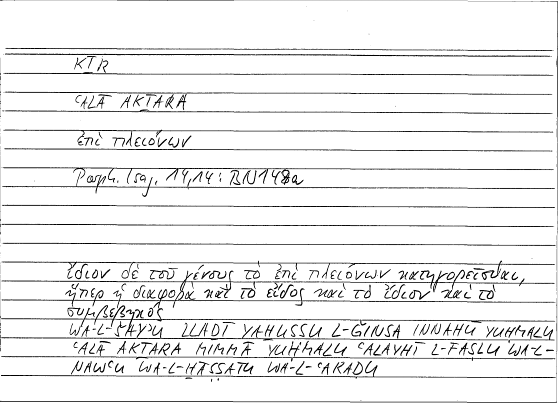 KṮR
ʿALĀ AKṮARA
ἐπὶ πλειόνων
Porph. Isag. 14,14: BN148a
ἴδιον δὲ τοῦ γένους τὸ ἐπὶ πλειόνων κατηγορεῖσθαι,
ἤπερ ἡ διαφορὰ καὶ τὸ εἶδος καὶ τὸ ἴδιον καὶ τὸ
συμβεβηκός
WA-L-ŠAYʾU LLAḎĪ YAḪUṢṢU L-ǦINSA INNAHŪ YUḤMALU
ʿALĀ AKṮARA MIMMĀ YUḤMALU ʿALAYHI L-FAṢLU WA-L-
NAWʿU WA-L-ḪĀṢṢATU WA-L-ʿARAḌU